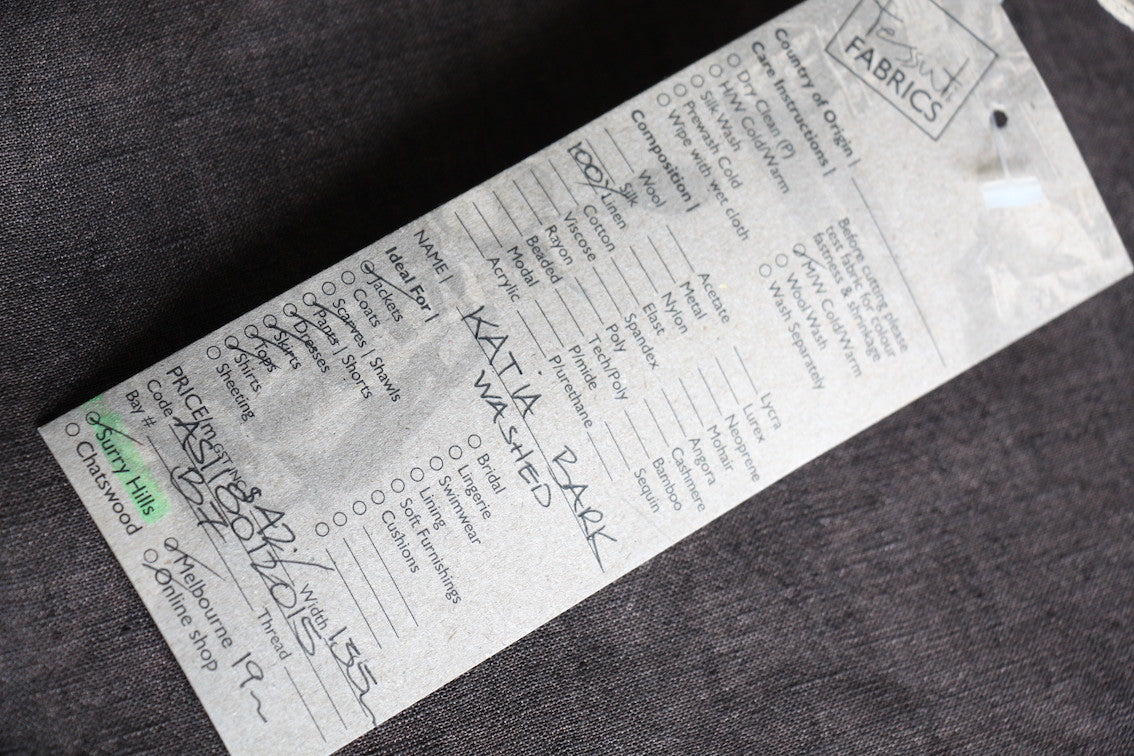 Tessuti
FABRICS
Country of Origin |
Care Instructions |
Dry Clean (P)
H/W Cold/Warm
Silk Wash
Prewash Cold
Wipe with wet cloth
Before cutting please
test fabric for colour
fastness & shrinkage
M/W Cold/Warm
Wool Wash
Wash Separately
Composition |
Wool
Silk
100% Linen
Cotton
Viscose
Rayon
Beaded
Modal
Acrylic
Acetate
Metal
Nylon
Elast
Spandex
Poly
Tech/Poly
P/mide
P/urethane
Lycra
Lurex
Neoprene
Mohair
Angora
Cashmere
Bamboo
Sequin
NAME | KATIA BARK
WASHED
Ideal For |
Jackets
Coats
Scarves | Shawls
Pants | Shorts
Dresses
Skirts
Tops
Shirts
Sheeting
Bridal
Lingerie
Swimwear
Lining
Soft Furnishings
Cushions
PRICE/m GST INC $ Width 1.35m
Code
Bay # Thread
Surry Hills
Chatswood
Melbourne 19m
Online shop